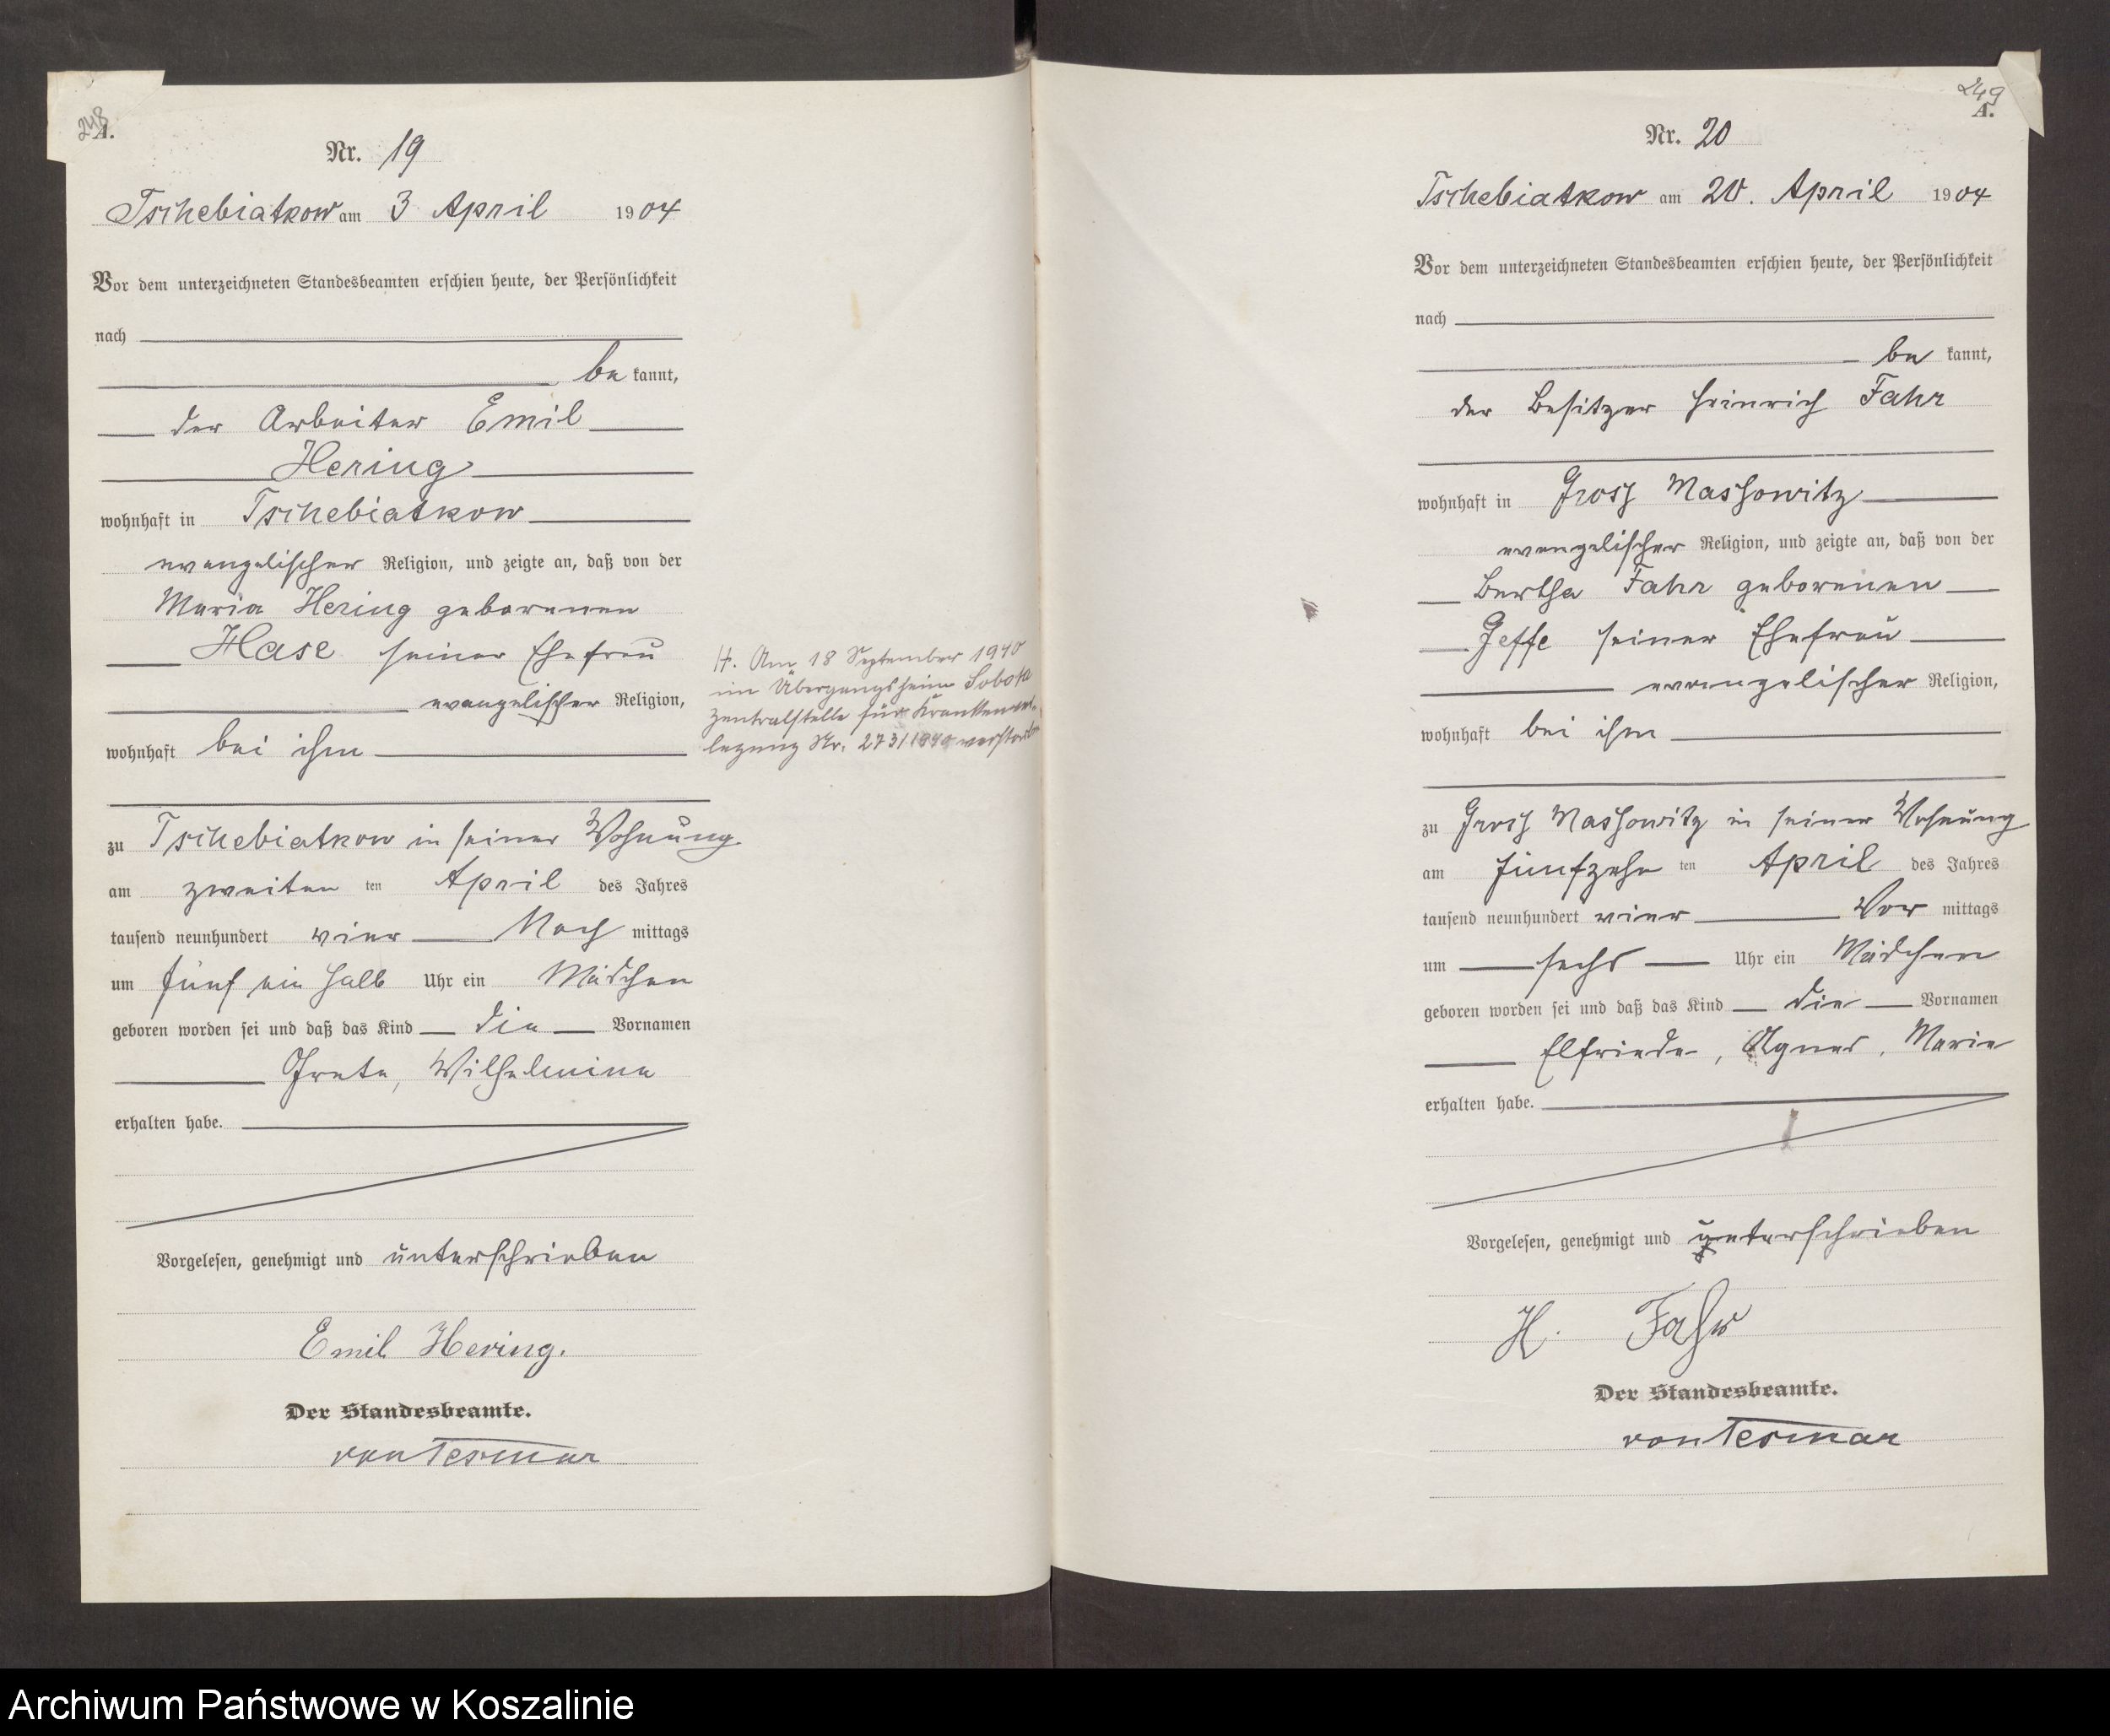 248
A.
Nr. 19
Tschebiatkow am 3 April 1904
Vor dem unterzeichneten Standesbeamten erschien heute, der Persönlichkeit
nach
be kannt,
der Arbeiter Emil
Hering
wohnhaft in Tschebiatkow
evangelischer Religion, und zeigte an, daß von der
Maria Hering geborenen
Hase seiner Ehefrau
evangelischer Religion,
wohnhaft bei ihm
zu Tschebiatkow in seiner Wohnung
am zweiten ten April des Jahres
tausend neunhundert vier Nach mittags
um fünf ein halb Uhr ein Mädchen
geboren worden sei und daß das Kind die Vornamen
Grete, Wilhelmine
erhalten habe.
Vorgelesen, genehmigt und unterschrieben
Emil Hering.
Der Standesbeamte.
von Tesmar
H. Am 18 September 1940
im Übergangsheim Sobota
Zentralstelle für Krankenver-
legung Nr. 273/1940 verstorben
249
A.
Nr. 20
Tschebiatkow am 20. April 1904
Vor dem unterzeichneten Standesbeamten erschien heute, der Persönlichkeit
nach
be kannt,
der Besitzer Heinrich Fahr
wohnhaft in Grosz Massowitz
evangelischer Religion, und zeigte an, daß von der
Bertha Fahr geborenen
Jeffe seiner Ehefrau
evangelischer Religion,
wohnhaft bei ihm
zu Grosz Massowitz in seiner Wohnung
am fünfzehn ten April des Jahres
tausend neunhundert vier Vor mittags
um sechs Uhr ein Mädchen
geboren worden sei und daß das Kind die Vornamen
Elfriede, Agnes, Marie
erhalten habe.
Vorgelesen, genehmigt und unterschrieben
H. Fahr
Der Standesbeamte.
von Tesmar
Archiwum Państwowe w Koszalinie